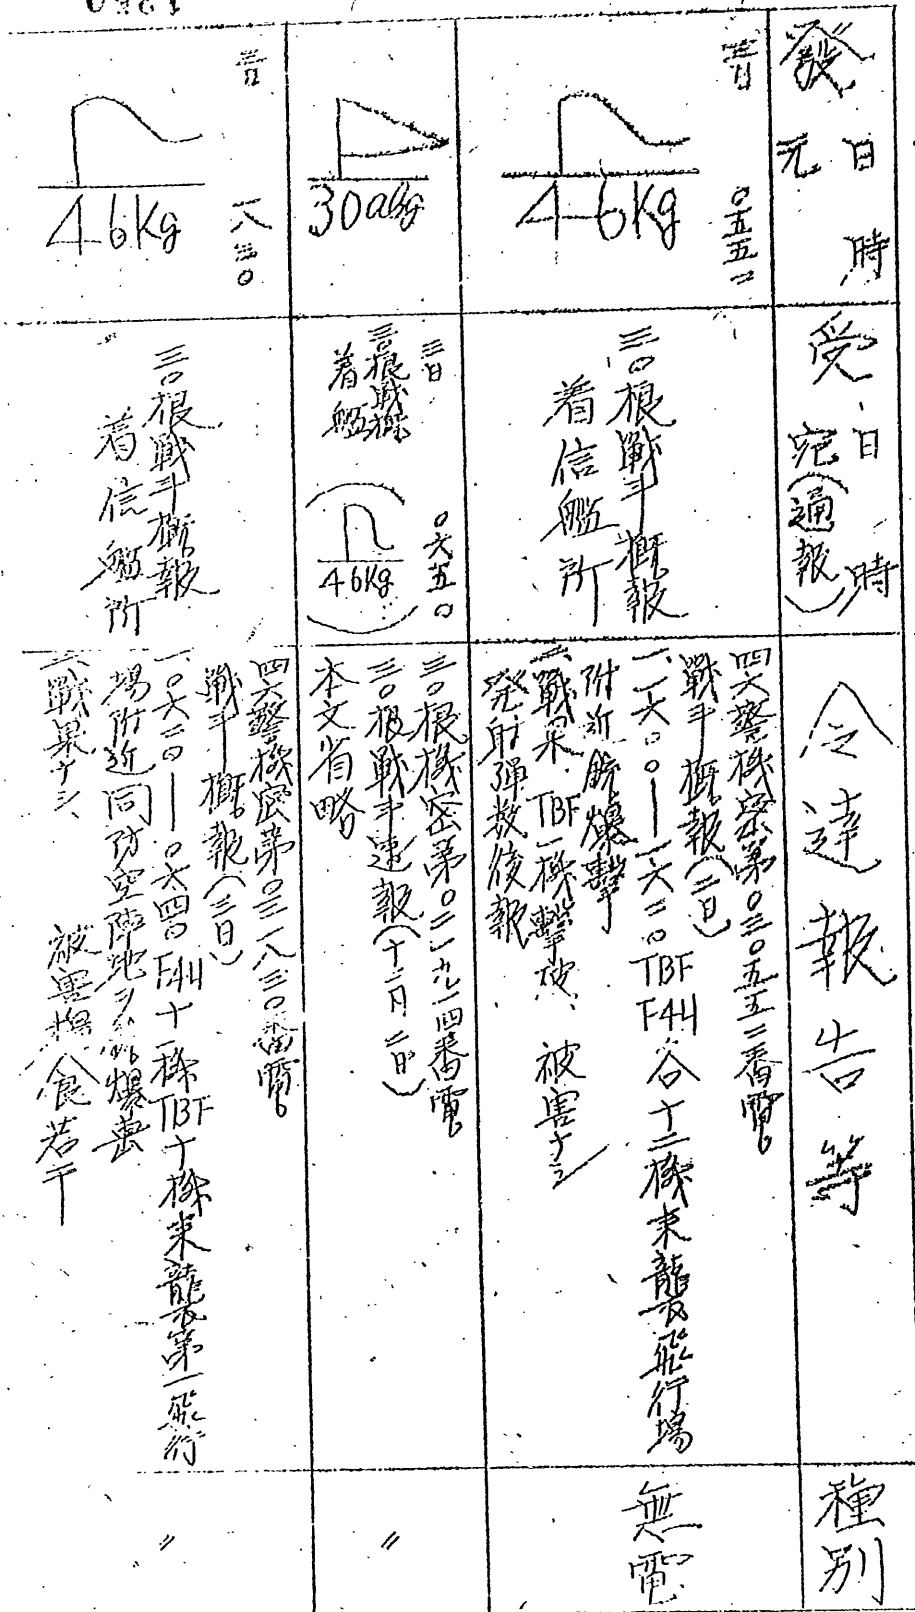 發元 日時
受 日時
宛(通報)
令達報告等
種別
三日
〇五五二
46Kg
三〇根戰斗概報
着信艦所
四六警機密第〇三〇五五二番電
戰斗概報(二日)
一、一六〇〇―一六二〇TBF F4U各十二機来襲飛行場
附近銃爆撃
二、戰果、TBF一機撃破、被害ナシ
発射彈数後報
無電
30aBg
三日
〇六五〇
三〇根戰概
着艦
(46Kg)
三〇根機密第〇二一九一四番電
三〇根戰斗速報(十二月二日)
本文省略
〃
三日
一八三〇
46Kg
三〇根戰斗概報
着信艦所
四六警機密第〇三一八三〇番電
戰斗概報(三日)
一、〇六二〇―〇六四〇F4U十一機TBF十機来襲第一飛行
場附近同防空陣地ヲ銃爆撃
二、戰果ナシ、被害糧食若干
〃